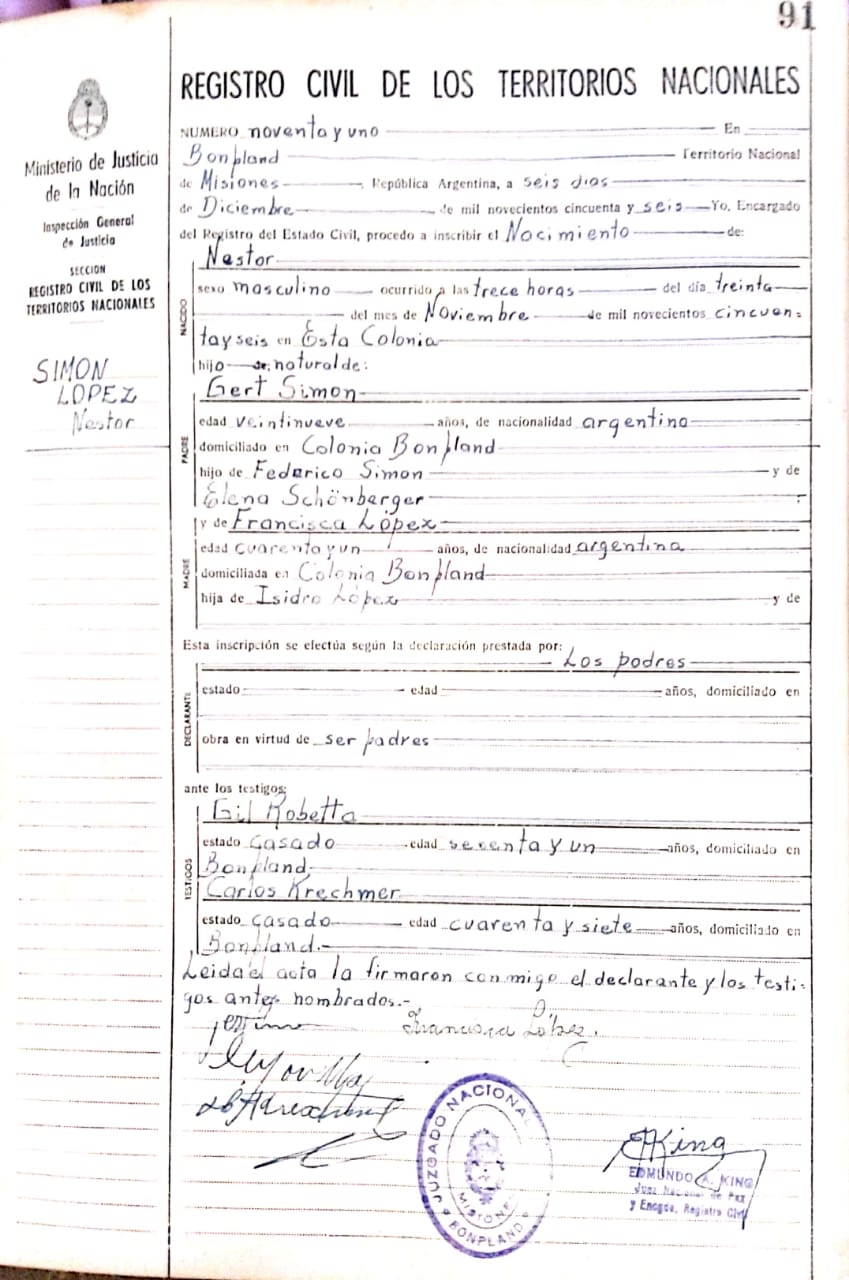 91
Ministerio de Justicia
de la Nación
Inspección General
de Justicia
SECCION
REGISTRO CIVIL DE LOS
TERRITORIOS NACIONALES
SIMON
LOPEZ
Nestor
REGISTRO CIVIL DE LOS TERRITORIOS NACIONALES
NUMERO noventa y uno En
Bonpland Territorio Nacional
de Misiones, República Argentina, a seis dias
de Diciembre de mil novecientos cincuenta y seis Yo, Encargado
del Registro del Estado Civil, procedo a inscribir el Nacimiento de:
NACIDO
Nestor
sexo masculino ocurrido a las trece horas del día treinta
del mes de Noviembre de mil novecientos cincuen=
ta y seis en Esta Colonia
hijo natural de:
PADRE
Gert Simon
edad veintinueve años, de nacionalidad argentina
domiciliado en Colonia Bonpland
hijo de Federico Simon y de
Elena Schönberger
MADRE
y de Francisca López
edad cuarenta y un años, de nacionalidad argentina
domiciliada en Colonia Bonpland
hija de Isidro López y de
Esta inscripción se efectúa según la declaración prestada por:
Los padres
DECLARANTE
estado edad años, domiciliado en
obra en virtud de ser padres
ante los testigos:
TESTIGOS
Gil Robetta
estado casado edad secenta y un años, domiciliado en
Bonpland.
Carlos Krechmer
estado casado edad cuarenta y siete años, domiciliado en
Bonpland.-
Leida el acta la firmaron conmigo el declarante y los testi=
gos antes nombrados.-
Francisca López.
JUZGADO NACIONAL
MISIONES
BONPLAND
EKing
EDMUNDO A. KING
Juez Nacional de Paz
y Encgdo. Registro Civil